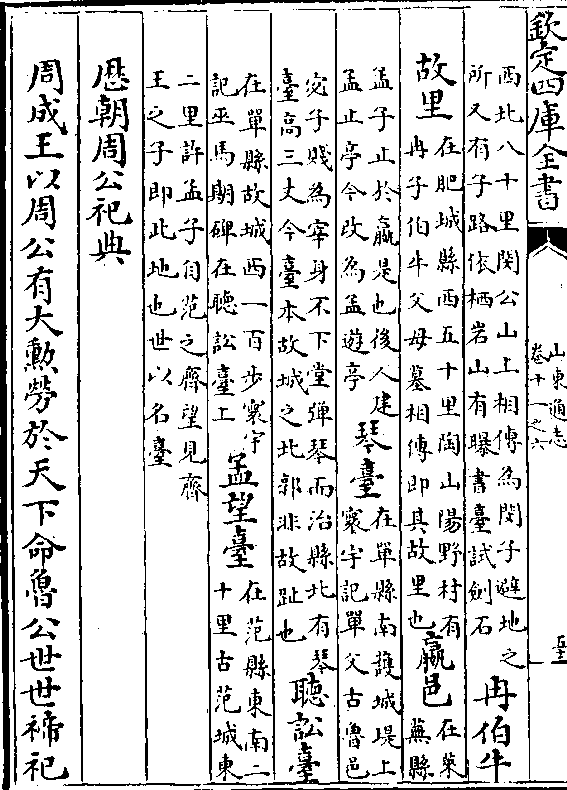 欽定四庫全書
山東通志
卷十一之六
西北八十里閔公山上相傳為閔子避地之
所又有子路依栖岩山有曝書臺試劍石
冉伯牛
故里
在肥城縣西五十里陶山陽野村有
冉子伯牛父母墓相傳即其故里也
嬴邑
在萊
蕪縣
孟子止於嬴是也後人建
孟止亭今改為孟遊亭
琴臺
在單縣南護城堤上
寰宇記單父古魯邑
宓子賤為宰身不下堂彈琴而治縣北有琴
臺高三丈今臺本故城之北郭非故趾也
聽訟臺
在單縣故城西一百步寰宇
記巫馬期碑在聽訟臺上
孟望臺
在范縣東南二
十里古范城東
二里許孟子自范之齊望見齊
王之子即此地也世以名臺
歷朝周公祀典
周成王以周公有大勳勞於天下命魯公世世禘祀